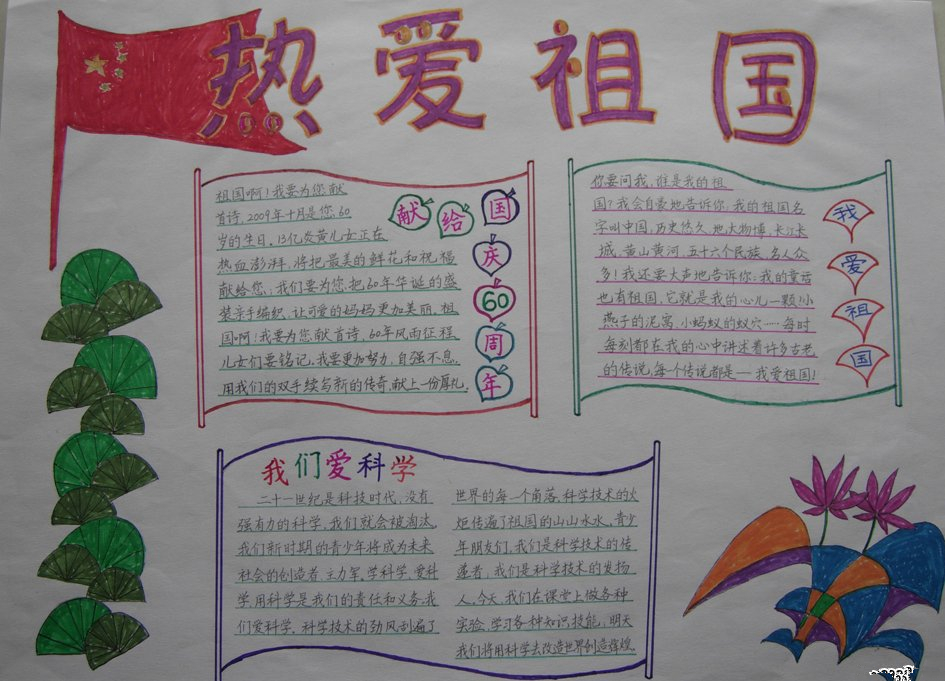 热爱祖国
祖国啊!我要为您献
首诗.2009年十月是您60
岁的生日。13亿炎黄儿女正在
热血澎湃,将把最美的鲜花和祝福
献给您,我们要为您把60年华诞的盛
装亲手编织,让可爱的妈妈更加美丽.祖
国啊!我要为您献首诗。60年风雨征程,
儿女们要铭记。我要更加努力,自强不息,
用我们的双手续写新的传奇,献上一份厚礼。
献给国庆60周年
你要问我,谁是我的祖
国?我会自豪地告诉你,我的祖国名
字叫中国,历史悠久,地大物博,长江长
城,黄山黄河,五十六个民族,名人众
多!我还要大声地告诉你:我的童话
也有祖国,它就是我的心儿一颗!小
燕子的泥窝,小蚂蚁的蚁穴……每时
每刻都在我的心中讲述着许多古老
的传说,每个传说都是——我爱祖国!
我爱祖国
我们爱科学
二十一世纪是科技时代,没有
强有力的科学,我们就会被淘汰。
我们新时期的青少年将成为未来
社会的创造者、主力军,学科学、爱科
学、用科学是我们的责任和义务。我
们爱科学,科学技术的劲风刮遍了
世界的每一个角落,科学技术的火
炬传遍了祖国的山山水水。青少
年朋友们,我们是科学技术的传
递者,我们是科学技术的发扬
人。今天,我们在课堂上做各种
实验,学习各种知识技能,明天
我们将用科学去改造世界创造辉煌。